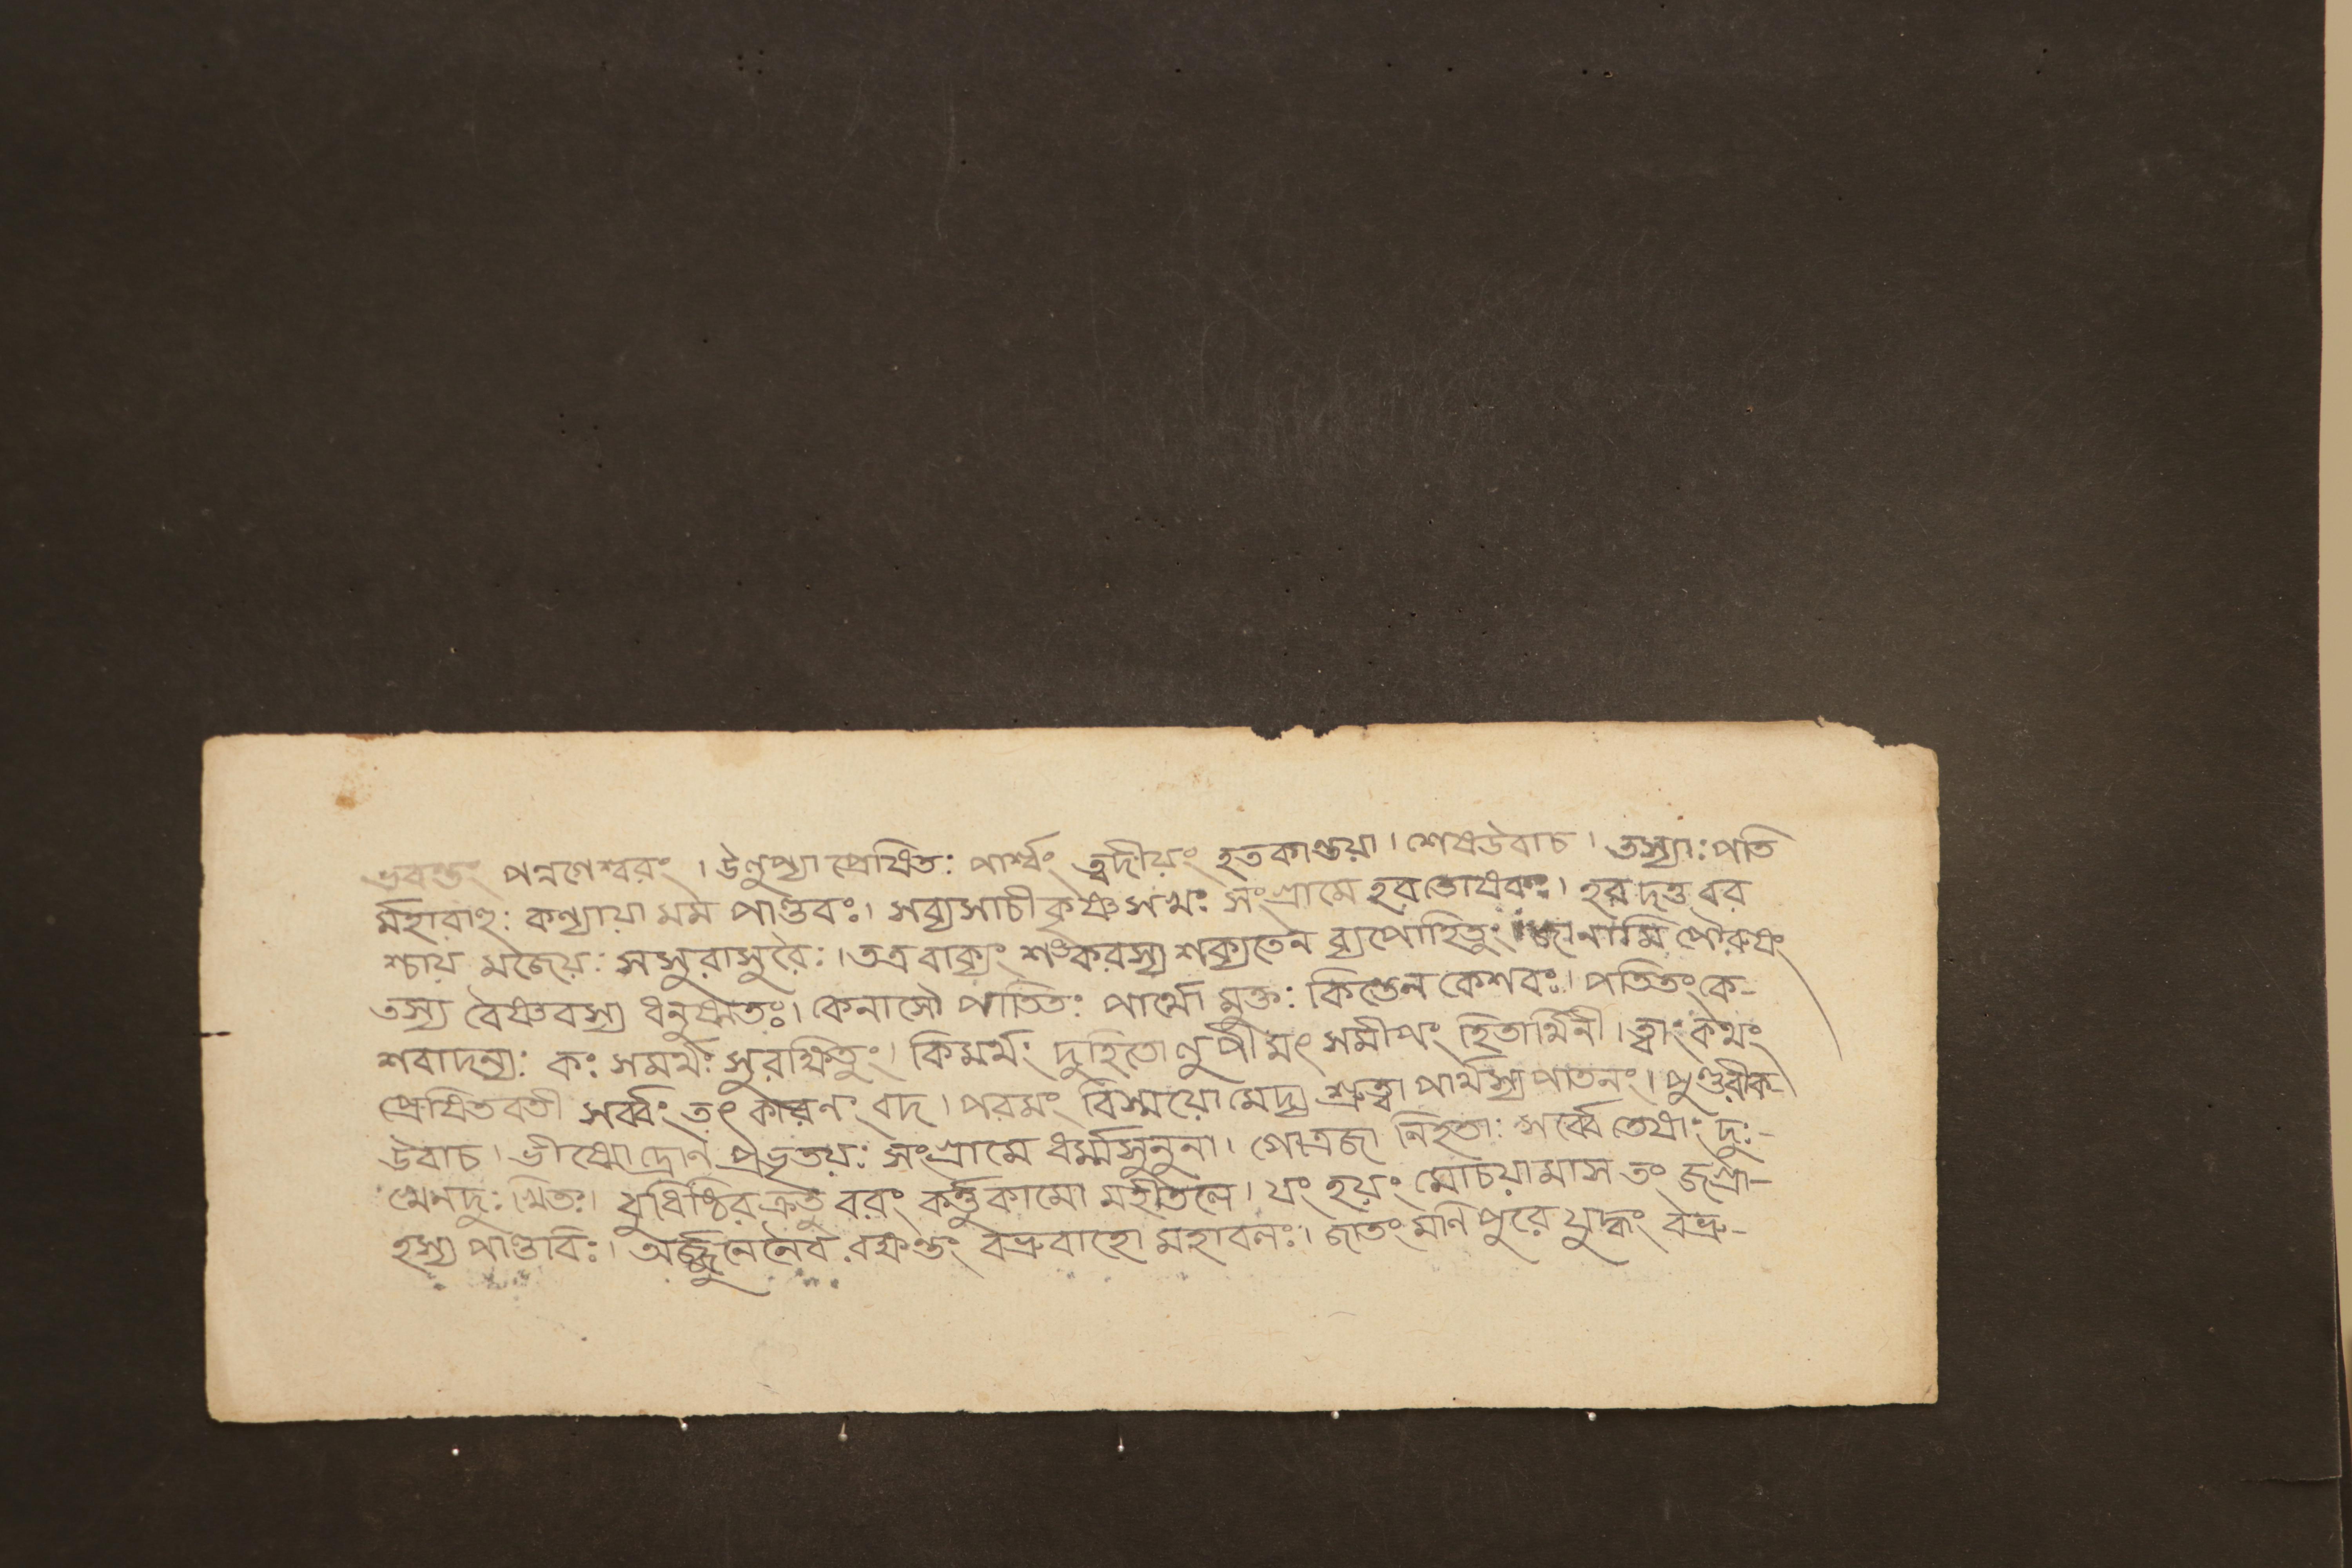 ভবন্তং পন্নগেশ্বরং । উলুপ্যা প্রেষিতঃ পার্শ্বং ত্বদীয়ং হতকান্তয়া । শেষউবাচ । তস্যাঃ পতি
র্মহাবাহুঃ কন্যায়া মম পাণ্ডবঃ । সব্যসাচী কৃষ্ণসখঃ সংগ্রামে হরতোষকঃ । হর দত্ত বর
শ্চায় মজেয়ঃ সসুরাসুরৈঃ । তত্র বাক্যং শঙ্করস্য শক্যতেন ব্যপোহিতুং জানামি পৌরুষং
তস্য বৈষ্ণবস্য ধনুষ্মতঃ । কেনাসৌ পাতিতঃ পার্থো মুক্তঃ কিন্তেন কেশবঃ । পতিতং কে-
শবাদন্যঃ কঃ সমর্থঃ সুরক্ষিতুং । কিমর্থং দুহিতোলুপী মৎ সমীপং হিতার্থিনী । ত্বাং কথং
প্রেষিতবতী সর্ব্বং তৎ কারনং বদ । পরমং বিস্ময়ো মেদ্য শ্রুত্বা পার্থস্য পাতনং । পুণ্ডরীক-
উবাচ । ভীষ্মো দ্রোন প্রভৃতয়ঃ সংগ্রামে ধর্ম্মসুনুনা । গোত্রজা নিহতাঃ সর্ব্বে তেষাং দুঃ-
খেনদুঃখিতঃ । যুধিষ্ঠির ক্রতু বরং কর্ত্তুকামো মহীতলে । যং হয়ং মোচয়ামাস তং জগ্রা-
হস্য পাণ্ডবিঃ । অর্জ্জুনেনৈব রক্ষন্তং বভ্রুবাহো মহাবলঃ । জাতং মনিপুরে যুদ্ধং বভ্রু-